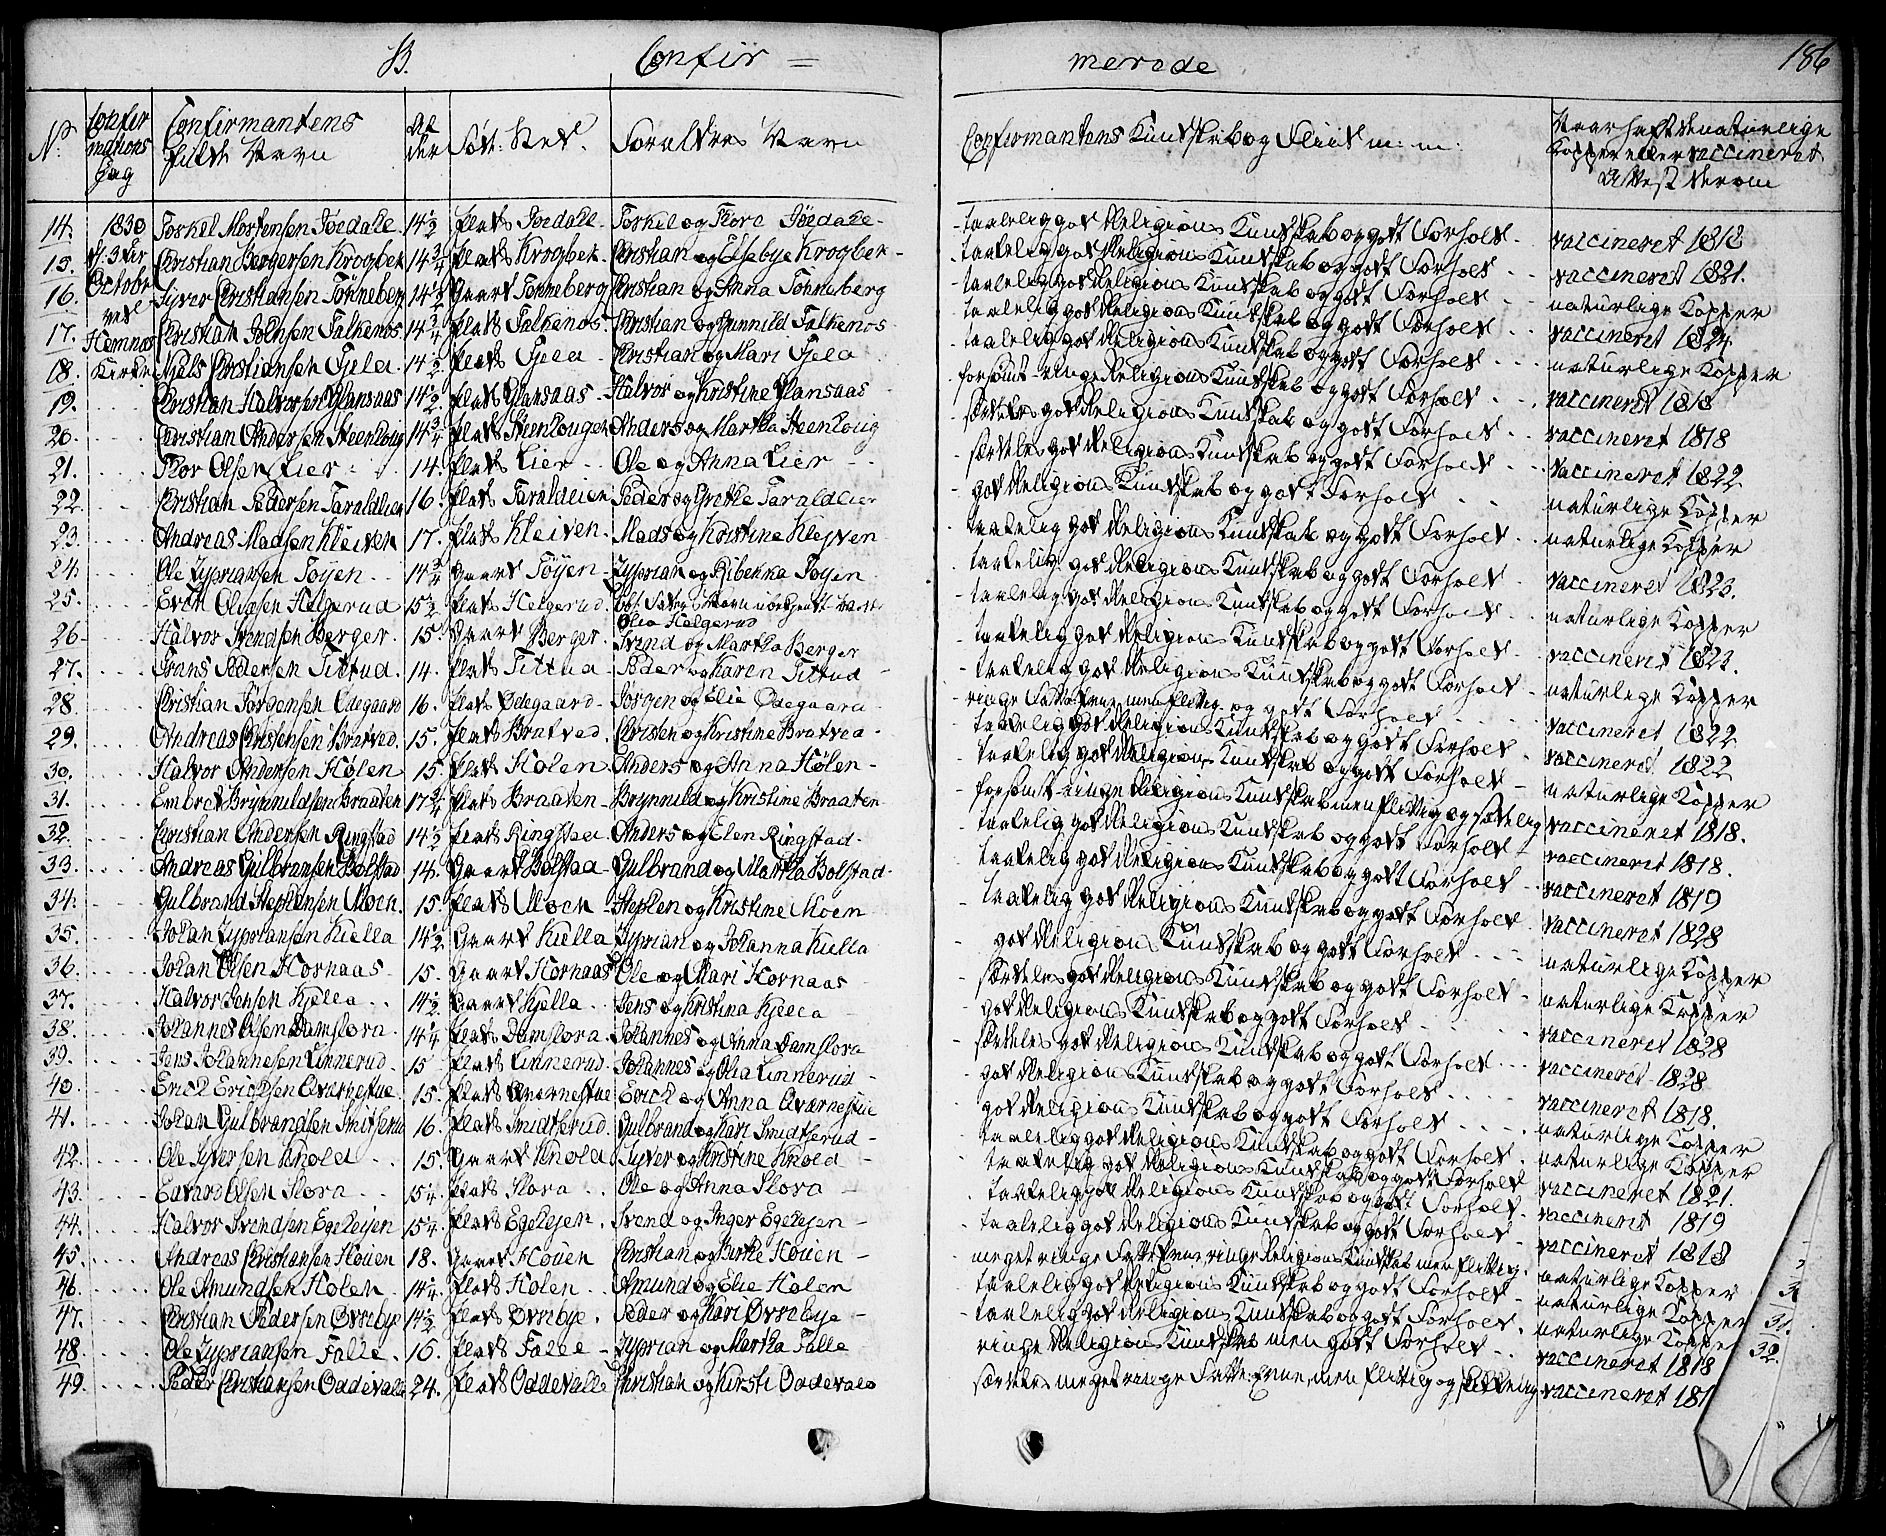 B. Confir =
merede 186
No. Confirmations Dag Confirmantens fulde Navn Alder Føde: Sted. Foraldres Navn Confirmantens Kundskab og Fliid m: m: Naar haft de naturlige Kopper eller vaccineret Attest derom
14. 1830 Torkel Mortensen Joedale 14½ Plads Joedale - Torkel og Thore Jöedale - taalelig god Religions Kundskab og godt Forhold - vaccineret 1818
15. d. 3die Christian Bergersen Krogbek 14¾ Plads Krogbek - Christian og Elsebye Krogbek - taalelig god Religions Kundskab og godt Forhold - - vaccineret 1821.
16. October Syver Christiansen Tonneberg 14½ Gaard Tonneberg Christian og Anna Tonneberg taalelig god Religions Kundskab og godt Forhold - - naturlige Kopper
17. ved Hemnæs Christian Johnsen Falkenos 14¾ Plads Falkenos - Christian og Gunnild Falkenos taalelig god Religions Kundskab og godt Forhold - - vaccineret 1824.
18. Kirke Niels Christiansen Fjela 14½ Plads Fjela - Christian og Mari Fjela taalelig god Religions Kundskab og godt Forhold - - naturlige Kopper
19. Christian Halvorsen Glansaas 14½ Plads Glansaas - Halvor og Kristine Glansaas forsömt - ringe Religions Kundskab og godt Forhold - - vaccineret 1818
20. Christian Andersen Steenloug 14¾ Plads Steenlougen Anders og Martha Steenloug særdeles god Religions Kundskab og godt Forhold - - vaccineret 1818
21. Thor Olsen Lier 14. Plads Lier - Ole og Anna Lier - særdeles god Religions Kundskab og godt Forhold - - vaccineret 1822
22. Christian Pedersen Taraldlien 16. Plads Taraldlien Peder og Grethe Taraldlien god Religions Kundskab og godt Forhold - - naturlige Kopper
23. Andreas Madsen Kleiven 17. Plads Kleiven - Mads og Kristine Klejven taalelig god Religions Kundskab og godt Forhold - naturlige Kopper
24. Ole Zypriansen Töyen 14¾ Gaard Töyen - Zyprian og Ribekka Töyen taalelig god Religions Kundskab og godt Forhold - vaccineret 1823.
25. Even Olavsen Helgerud 15½ Plads Helgerud Obs: Fadrens Navn ubekjendt Moder Olea Helgerud taalelig god Religions Kundskab og godt Forhold - naturlige Kopper
26. Halvor Svendsen Berger. 15. Gaard Berger. Svend og Martha Berger taalelig god Religions Kundskab og godt Forhold - vaccineret 1823.
27. Frans Pedersen Tittrud. 14. Plads Tittrud - Peder og Karen Tittrud - taalelig god Religions Kundskab og godt Forhold - naturlige Kopper
28. Christian Jörgensen Ödegaard 16. Plads Ödegaard - Jörgen og Elie Ödegaard - ringe Fatte Evne, men flittig og godt Forhold - - vaccineret 1822
29. Andreas Christensen Bratved. 15. Plads Bratved. Christen og Kristine Bratved - taalelig god Religions Kundskab og godt Forhold - vaccineret 1822
30. Halvor Andersen Hölen 15. Plads Hölen Anders og Anna Hölen - taalelig god Religions Kundskab og godt Forhold - naturlige Kopper
31. Embret Brynnildsen Braaten 17¾ Plads Braaten - Brynnild og Kristine Braaten - forsömt - ringe Religions Kundskab men flittig og sædelig vaccineret 1818.
32. Christian Andersen Ringstad 14½ Plads Ringstad Anders og Elen Ringstad - taalelig god Religions Kundskab og godt Forhold - vaccineret 1818.
33. Andreas Gulbransen Bolstad 14. Gaard Bolstad Gulbrand og Martha Bolstad - taalelig god Religions Kundskab og godt Forhold - vaccineret 1819
34. Gulbrand Stephensen Moen. 15. Plads Moen - Stephen og Kristine Moen taalelig god Religions Kundskab og godt Forhold - vaccineret 1828
35. Johan Zypriansen Kiella 14½ Gaard Kiella Zyprian og Johanna Kiella god Religions Kundskab og godt Forhold - - - naturlige Kopper
36. Johan Olsen Hornaas 15. Gaard Hornaas Ole og Mari Hornaas - særdeles god Religions Kundskab og godt Forhold - naturlige Kopper
37. Halvor Jensen Kjella 14½ Gaard Kjella Jens og Kristina Kjella god Religions Kundskab og godt Forhold - vaccineret 1828
38. Johannes Olsen Damslora 14¼ Plads Damslora Johannes og Anna Damslora særdeles god Religions Kundskab og godt Forhold - - vaccineret 1828
39. Jens Johannesen Linnerud 15 Plads Linnerud Johannes og Olia Linnerud god Religions Kundskab og godt Forhold - - - vaccineret 1818.
40. Erick Ericksen Qværnestue 15. Plads Qværnestue Erick og Anna Qværnestue god Religions Kundskab og godt Forhold - - - naturlige Kopper
41. Johan Gulbrandsen Smidserud 16. Plads Smidtserud Gulbrand og Kari Smidtserud - taalelig god Religions Kundskab og godt Forhold - naturlige Kopper
42. Ole Syversen Knold 15. Gaard Knold Syver og Kristine Knold - taalelig god Religions Kundskab og godt Forhold vaccineret 1821.
43. Edvard Olsen Slora 15¼ Plads Slora Ole og Anna Slora - taalelig god Religions Kundskab og godt Forhold - vaccineret 1819
44. Halvor Svendsen Egelejen 15¼ Plads Egelejen. Svend og Inger Egelejen - taalelig god Religions Kundskab og godt Forhold - vaccineret 1818
45. Andreas Christiansen Houen 18. Gaard Houen Christian og Berthe Houen - meget ringe Fatte Evne, ringe Religions Kundskab men flittig. naturlige Kopper
46. Ole Amundsen Holen. 14¼ Plads Holen Amund og Elie Holen taalelig god Religions Kundskab og godt Forhold - naturlige Kopper
47. Christian Pedersen Övrebye 14½ Plads Övrebye. Peder og Kari Övrebye - taalelig god Religions Kundskab og godt Forhold. naturlige Kopper
48. Ole Zypriansen Falle. 16. Plads Falle - Zyprian og Martha Falle - ringe Religions Kundskab men godt Forhold - - vaccineret 1818
49. Peder Christiansen Oddevald 24. Plads Oddevalle Christian og Kirsti Oddevald særdeles meget ringe Fatte Evne, men flittig og sædelig vaccineret 181
31.
32.